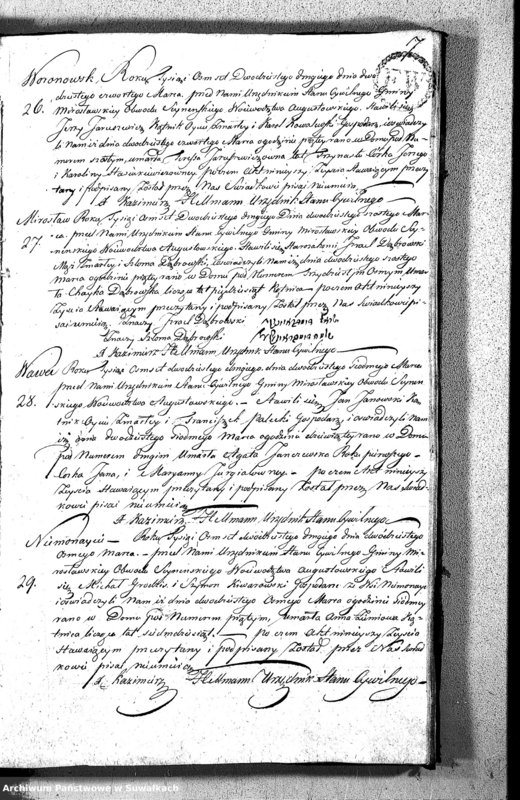 7
Woronowsk. Roku Tysiąc Ośmset Dwudziestego drugiego dnia dwu
26. dziestego czwartego Marca, przed Nami Urzędnikiem Stanu Cywilnego Gminy
Mirosławskiey Obwodu Seyneńskiego Woiewództwa Augustowskiego. Stawili się
Jerzy Kątnik Oyciec Zmarłey i Karol Kowalewski Gospodarz, i oświadczy
li Nam iż dnia dwudziestego czwartego Marca o godzinie piątey rano w Domu pod Nu
merem szóstym, umarła Teresa lat Trzynaście Córka Jerzego
i Karoliny poczem Akt ninieyszy Zeyścia Stawaiącym przeczy
tany i podpisany Został przez Nas Świadkowie pisać nieumieią
X. Kazimierz Hellmann Urzędnik Stanu Cywilnego
Mirosław Roku Tysiąc Ośmset Dwudziestego drugiego Dnia dwudziestego szóstego Mar
27. ca, przed Nami Urzędnikiem Stanu Cywilnego Gminy Mirosławskiey Obwodu Sey
neńskiego Woiewództwa Augustowskiego. Stawili się Starozakoni Jzrael Dąbrowski
Mąż Zmarłey i Szloma Dąbrowski, i oświadczyli Nam iż dnia dwudziestego szóstego
Marca o godzinie piątey rano w Domu pod Numerem Trzydziestym Osmym Umar
ła Chayka Dąbrowska licząca lat pięćdziesiąt Kątnica poczem Akt ninieyszy
Zeyścia Stawaiącym przeczytany i podpisany Został przez Nas Świadkowie pi
sać umieią Znaczy Jzrael Dąbrowski
Znaczy Szloma Dąbrowski
X. Kazimierz Hellmann, Urzędnik Stanu Cywilnego
Wawer Roku Tysiąc Ośmset dwudziestego drugiego, dnia dwudziestego siódmego Marca
28. przed Nami Urzędnikiem Stanu Cywilnego Gminy Mirosławskiey Obwodu Seyneń
skiego, Woiewództwa Augustowskiego. Stawili się Jan Janowski Ką
tnik Oyciec Zmarłey i Franciszek Palecki Gospodarz i oświadczyli Nam
iż dnia dwudziestego siódmego Marca o godzinie dziewiątey rano w Domu
pod Numerem drugim Umarła Agata Janczewska Roku pierwszego
Córka Jana, i Maryanny poczem Akt ninieyszy
Zeyścia Stawaiącym przeczytany i podpisany Został przez Nas Świad
kowie pisać nieumieią
X. Kazimierz Hellmann Urzędnik Stanu Cywilnego
Niemonayce Roku Tysiąc Ośmset dwudziestego drugiego dnia dwudziestego
29. Osmego Marca przed Nami Urzędnikiem Stanu Cywilnego Gminy Mi
rosławskiey Obwodu Seyneńskiego Woiewództwa Augustowskiego Stawili
się Michał i Szymon Gospodarze ze Wsi Niemonayc
i oświadczyli Nam iż dnia dwudziestego Osmego Marca o godzinie siódmey
rano w Domu pod Numerem piątym, umarła Anna Ką
tnica licząca lat siedmdziesiąt. poczem Akt ninieyszy Zeyścia
Stawaiącym przeczytany i podpisany Został przez Nas Świad
kowie pisać nieumieią
X. Kazimierz Hellmann Urzędnik Stanu Cywilnego
Archiwum Państwowe w Suwałkach